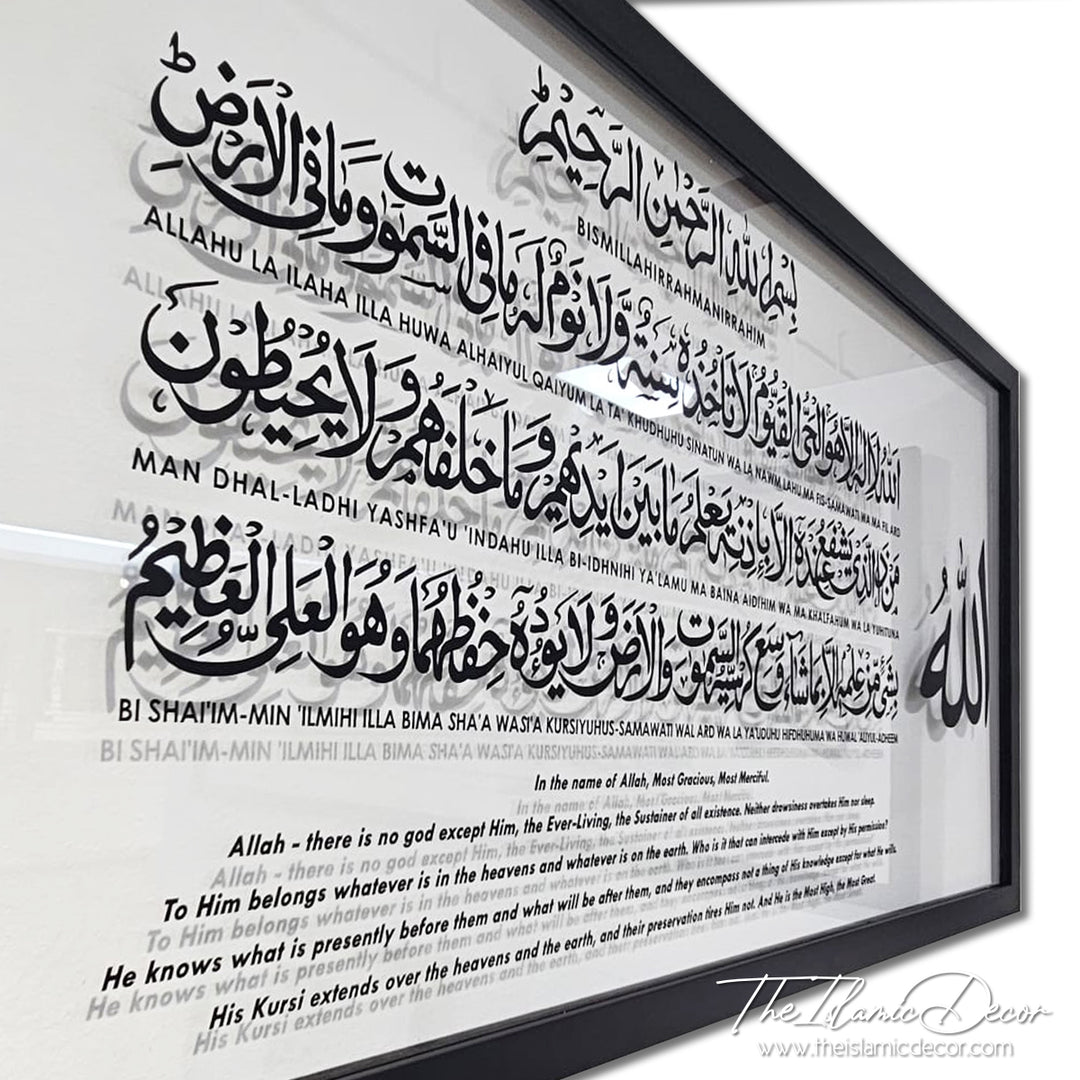 بِسْمِ اللهِ الرَّحْمٰنِ الرَّحِيْمِ
BISMILLAHIRRAHMANIRRAHIM
اَللهُ لَا اِلٰهَ اِلَّا هُوَ الْحَيُّ الْقَيُّوْمُ لَا تَأْخُذُهٗ سِنَةٌ وَّلَا نَوْمٌ لَهٗ مَا فِى السَّمٰوٰتِ وَمَا فِى الْاَرْضِ
ALLAHU LA ILAHA ILLA HUWA ALHAIYUL QAIYUM LA TA' KHUDHUHU SINATUN WA LA NAWM LAHU MA FIS-SAMAWATI WA MA FIL ARD
مَنْ ذَا الَّذِىْ يَشْفَعُ عِنْدَهٗ اِلَّا بِاِذْنِهٖ يَعْلَمُ مَا بَيْنَ اَيْدِيْهِمْ وَمَا خَلْفَهُمْ وَلَا يُحِيْطُوْنَ
MAN DHAL-LADHI YASHFA'U 'INDAHU ILLA BI-IDHNIHI YA'LAMU MA BAINA AIDIHIM WA MA KHALFAHUM WA LA YUHITUNA
بِشَىْءٍ مِّنْ عِلْمِهٖ اِلَّا بِمَا شَآءَ وَسِعَ كُرْسِيُّهُ السَّمٰوٰتِ وَالْاَرْضَ وَلَا يَـُٔوْدُهٗ حِفْظُهُمَا وَهُوَ الْعَلِىُّ الْعَظِيْمُ
BI SHAI'IM-MIN 'ILMIHI ILLA BIMA SHA'A WASI'A KURSIYUHUS-SAMAWATI WAL ARD WA LA YA'UDUHU HIFDHUHUMA WA HUWAL 'ALIYUL-ADHEEM
اللهُ
In the name of Allah, Most Gracious, Most Merciful.
Allah - there is no god except Him, the Ever-Living, the Sustainer of all existence. Neither drowsiness overtakes Him nor sleep.
To Him belongs whatever is in the heavens and whatever is on the earth. Who is it that can intercede with Him except by His permission?
He knows what is presently before them and what will be after them, and they encompass not a thing of His knowledge except for what He wills.
His Kursi extends over the heavens and the earth, and their preservation tires Him not. And He is the Most High, the Most Great.
The Islamic Decor
www.theislamicdecor.com